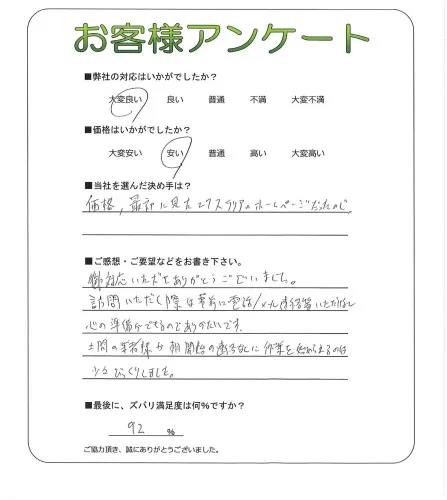 お客様アンケート
■弊社の対応はいかがでしたか？
大変良い 良い 普通 不満 大変不満
■価格はいかがでしたか？
大変安い 安い 普通 高い 大変高い
■当社を選んだ決め手は？
価格，最初に見たエクステリアのホームページだったので
■ご感想・ご要望などをお書き下さい。
御対応いただきありがとうございました。
訪問いただく際は事前に電話/メール連絡等いただければ
心の準備ができるのでありがたいです。
土間の業者様が朝開始の連絡なしに作業を始められるのは
少々びっくりしました。
■最後に、ズバリ満足度は何%ですか？
92 %
ご協力頂き、誠にありがとうございました。